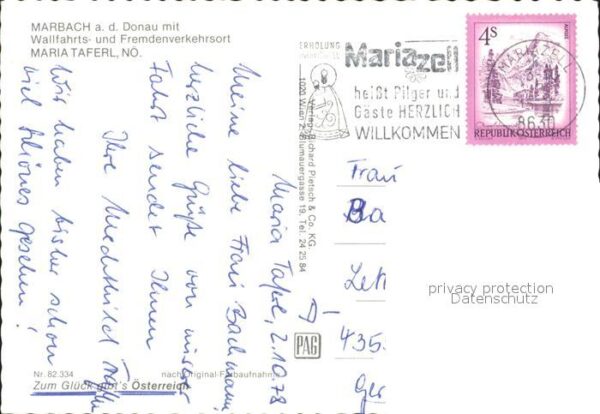 MARBACH a. d. Donau mit
Wallfahrts- und Fremdenverkehrsort
MARIA TAFERL, NÖ.
ERHOLUNG
Mariazell
heißt Pilger und
Gäste HERZLICH
WILLKOMMEN
4s
REPUBLIK ÖSTERREICH
MARIAZELL
8630
Verlag Richard Pietsch & Co. KG.
1020 Wien 2, Blumauergasse 19, Tel. 24 25 84
PAG
Maria Taferl, 2.10.78
Meine liebe Frau Bachmann,
herzliche Grüße von unserer
Fahrt sendet Ihnen
Ihre Mechthild
Wir haben bisher schon
viel Schönes gesehen!
Frau
Ba
D-
435.
Ger
privacy protection
Datenschutz
Nr. 82.334
nach Original-Farbaufnahme
Zum Glück gibt's Österreich